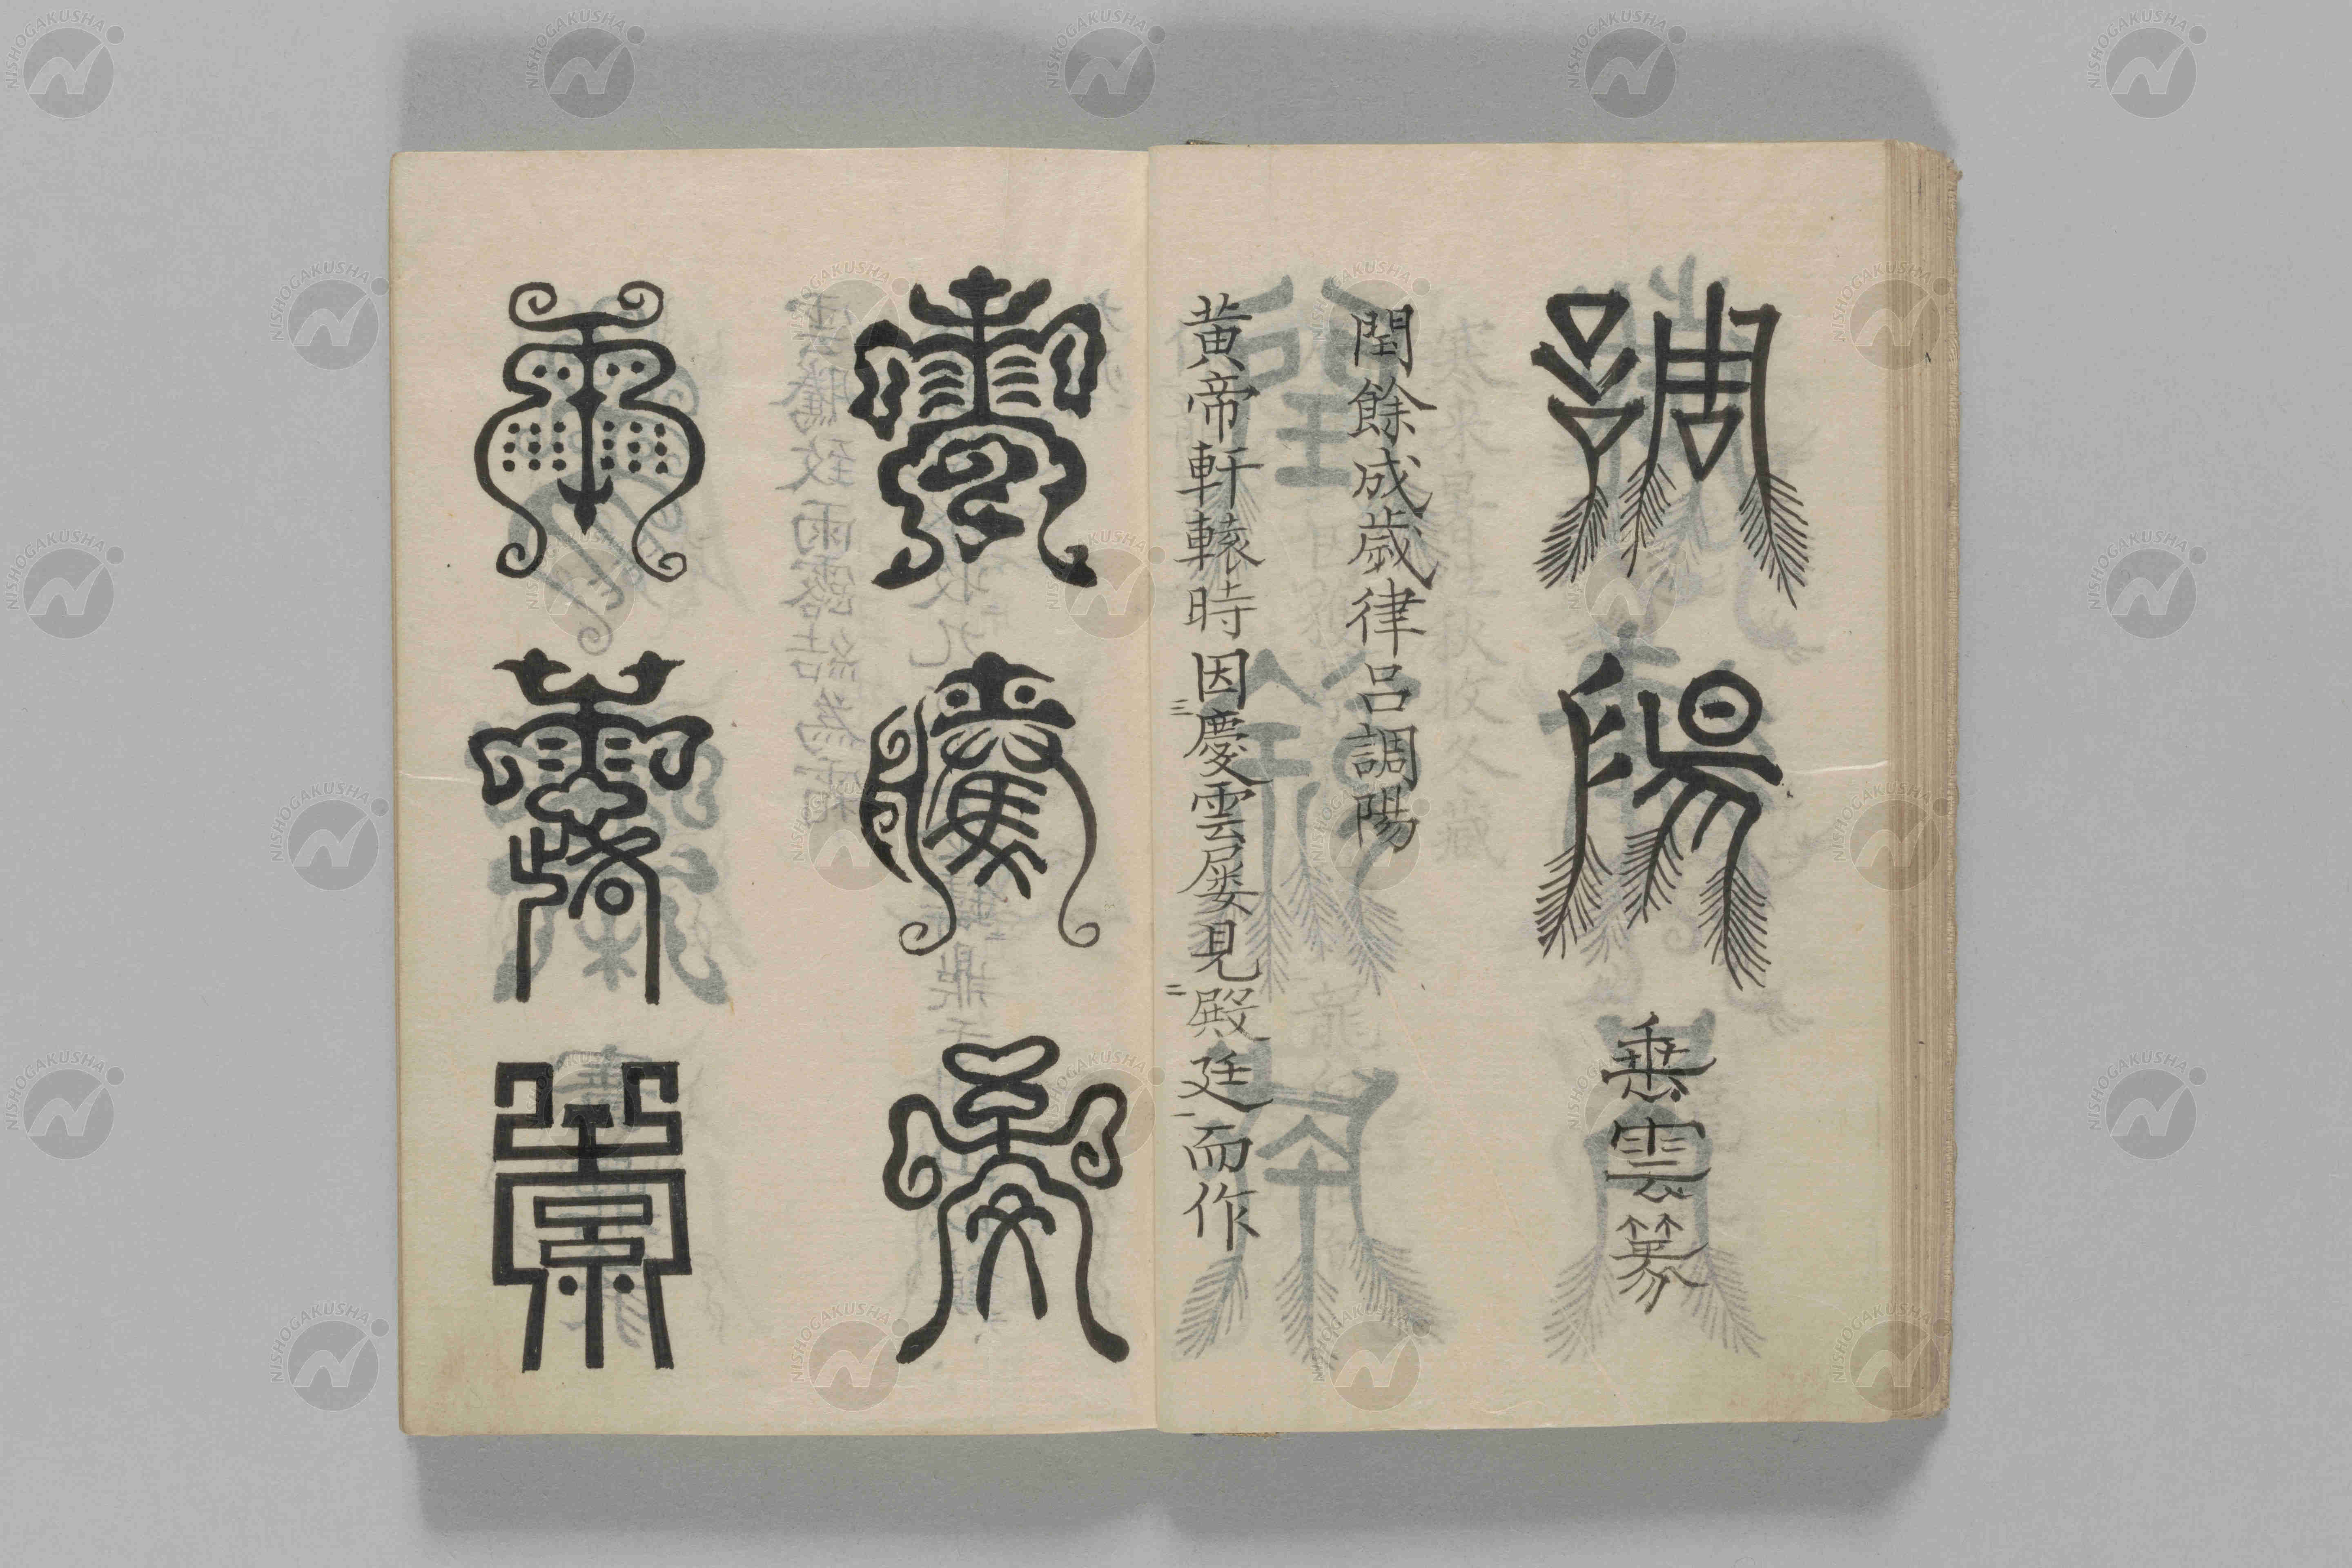 調陽
乗雲篆
閏餘成歲律呂調陽
黄帝軒轅時因慶雲屡見殿廷而作
雲騰致
雨露
NISHOGAKUSHA